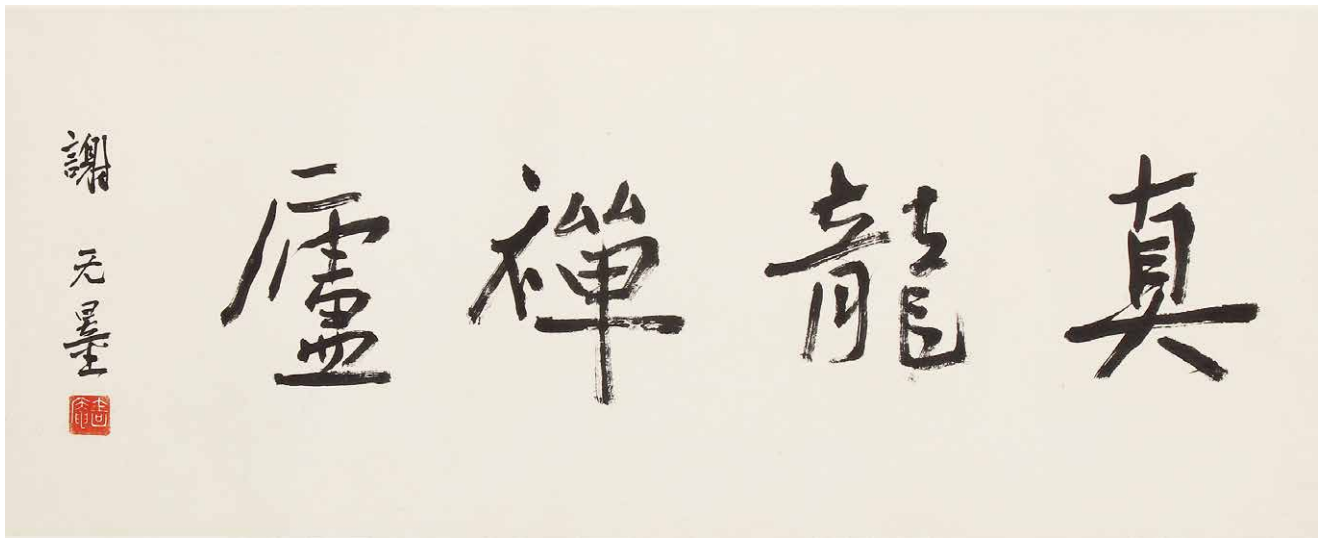 真龍禪廬
謝无量